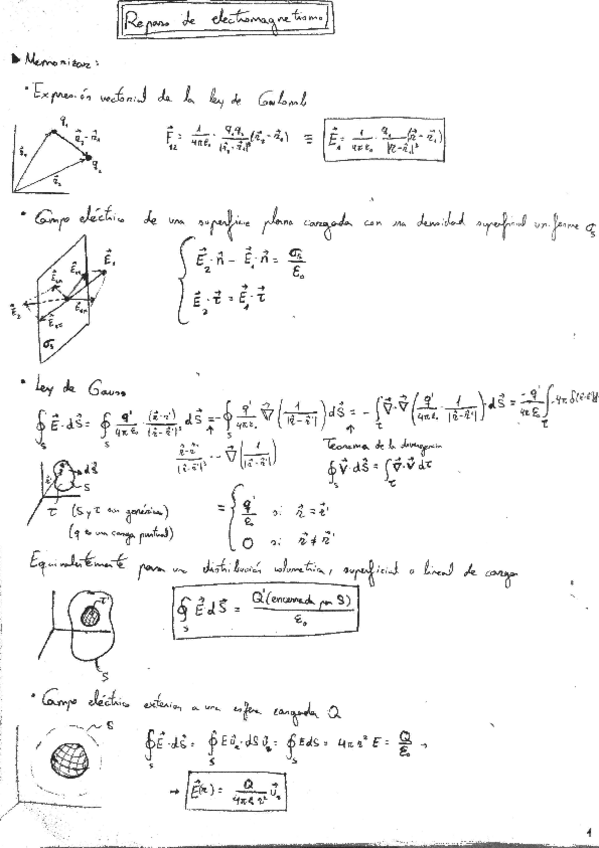 Repaso de electromagnetismo
▶ Memorizar:
• Expresión vectorial de la ley de Coulomb
q₁ r⃗₁ r⃗₂ - r⃗₁ q₂ r⃗₂
F⃗₁₂ = 1/4πε₀ · q₁q₂/|r⃗₂-r⃗₁|³ (r⃗₂-r⃗₁) ≡ E⃗₁ = 1/4πε₀ · q₁/|r⃗-r⃗₁|³ (r⃗-r⃗₁)
• Campo eléctrico de una superficie plana cargada con una densidad superficial uniforme σₛ
E⃗₂·n⃗ - E⃗₁·n⃗ = σₛ/ε₀
E⃗₂·τ⃗ = E⃗₁·τ⃗
E⃗₁ E⃗₂ σₛ
• Ley de Gauss
∮ₛ E⃗·dS⃗ = ∮ₛ q'/4πε₀ · (r⃗-r⃗')/|r⃗-r⃗'|³ dS⃗ = -∮ₛ q'/4πε₀ ∇⃗(1/|r⃗-r⃗'|) dS⃗ = -∫τ ∇⃗·∇⃗(q'/4πε₀ · 1/|r⃗-r⃗'|)·dS⃗ = -q'/4πε₀ ∫τ -4πδ(r⃗-r⃗')
r⃗-r⃗'/|r⃗-r⃗'|³ = -∇⃗(1/|r⃗-r⃗'|)
Teorema de la divergencia
∮ₛ V⃗·dS⃗ = ∫τ ∇⃗·V⃗ dτ
dS⃗ S
τ (S y τ son genéricos)
(q es una carga puntual)
= { q'/ε₀ si r⃗ = r⃗'
0 si r⃗ ≠ r⃗'
Equivalentemente para una distribución volumétrica, superficial o lineal de carga
τ' S
∮ₛ E⃗ dS⃗ = Q'(encerrada por S)/ε₀
• Campo eléctrico exterior a una esfera cargada Q
S
∮ₛ E⃗·dS⃗ = ∮ₛ E u⃗ᵣ·dS u⃗ᵣ = ∮ₛ E dS = 4πr² E = Q/ε₀ →
→ E⃗(r) = Q/4πε₀r² u⃗ᵣ
1